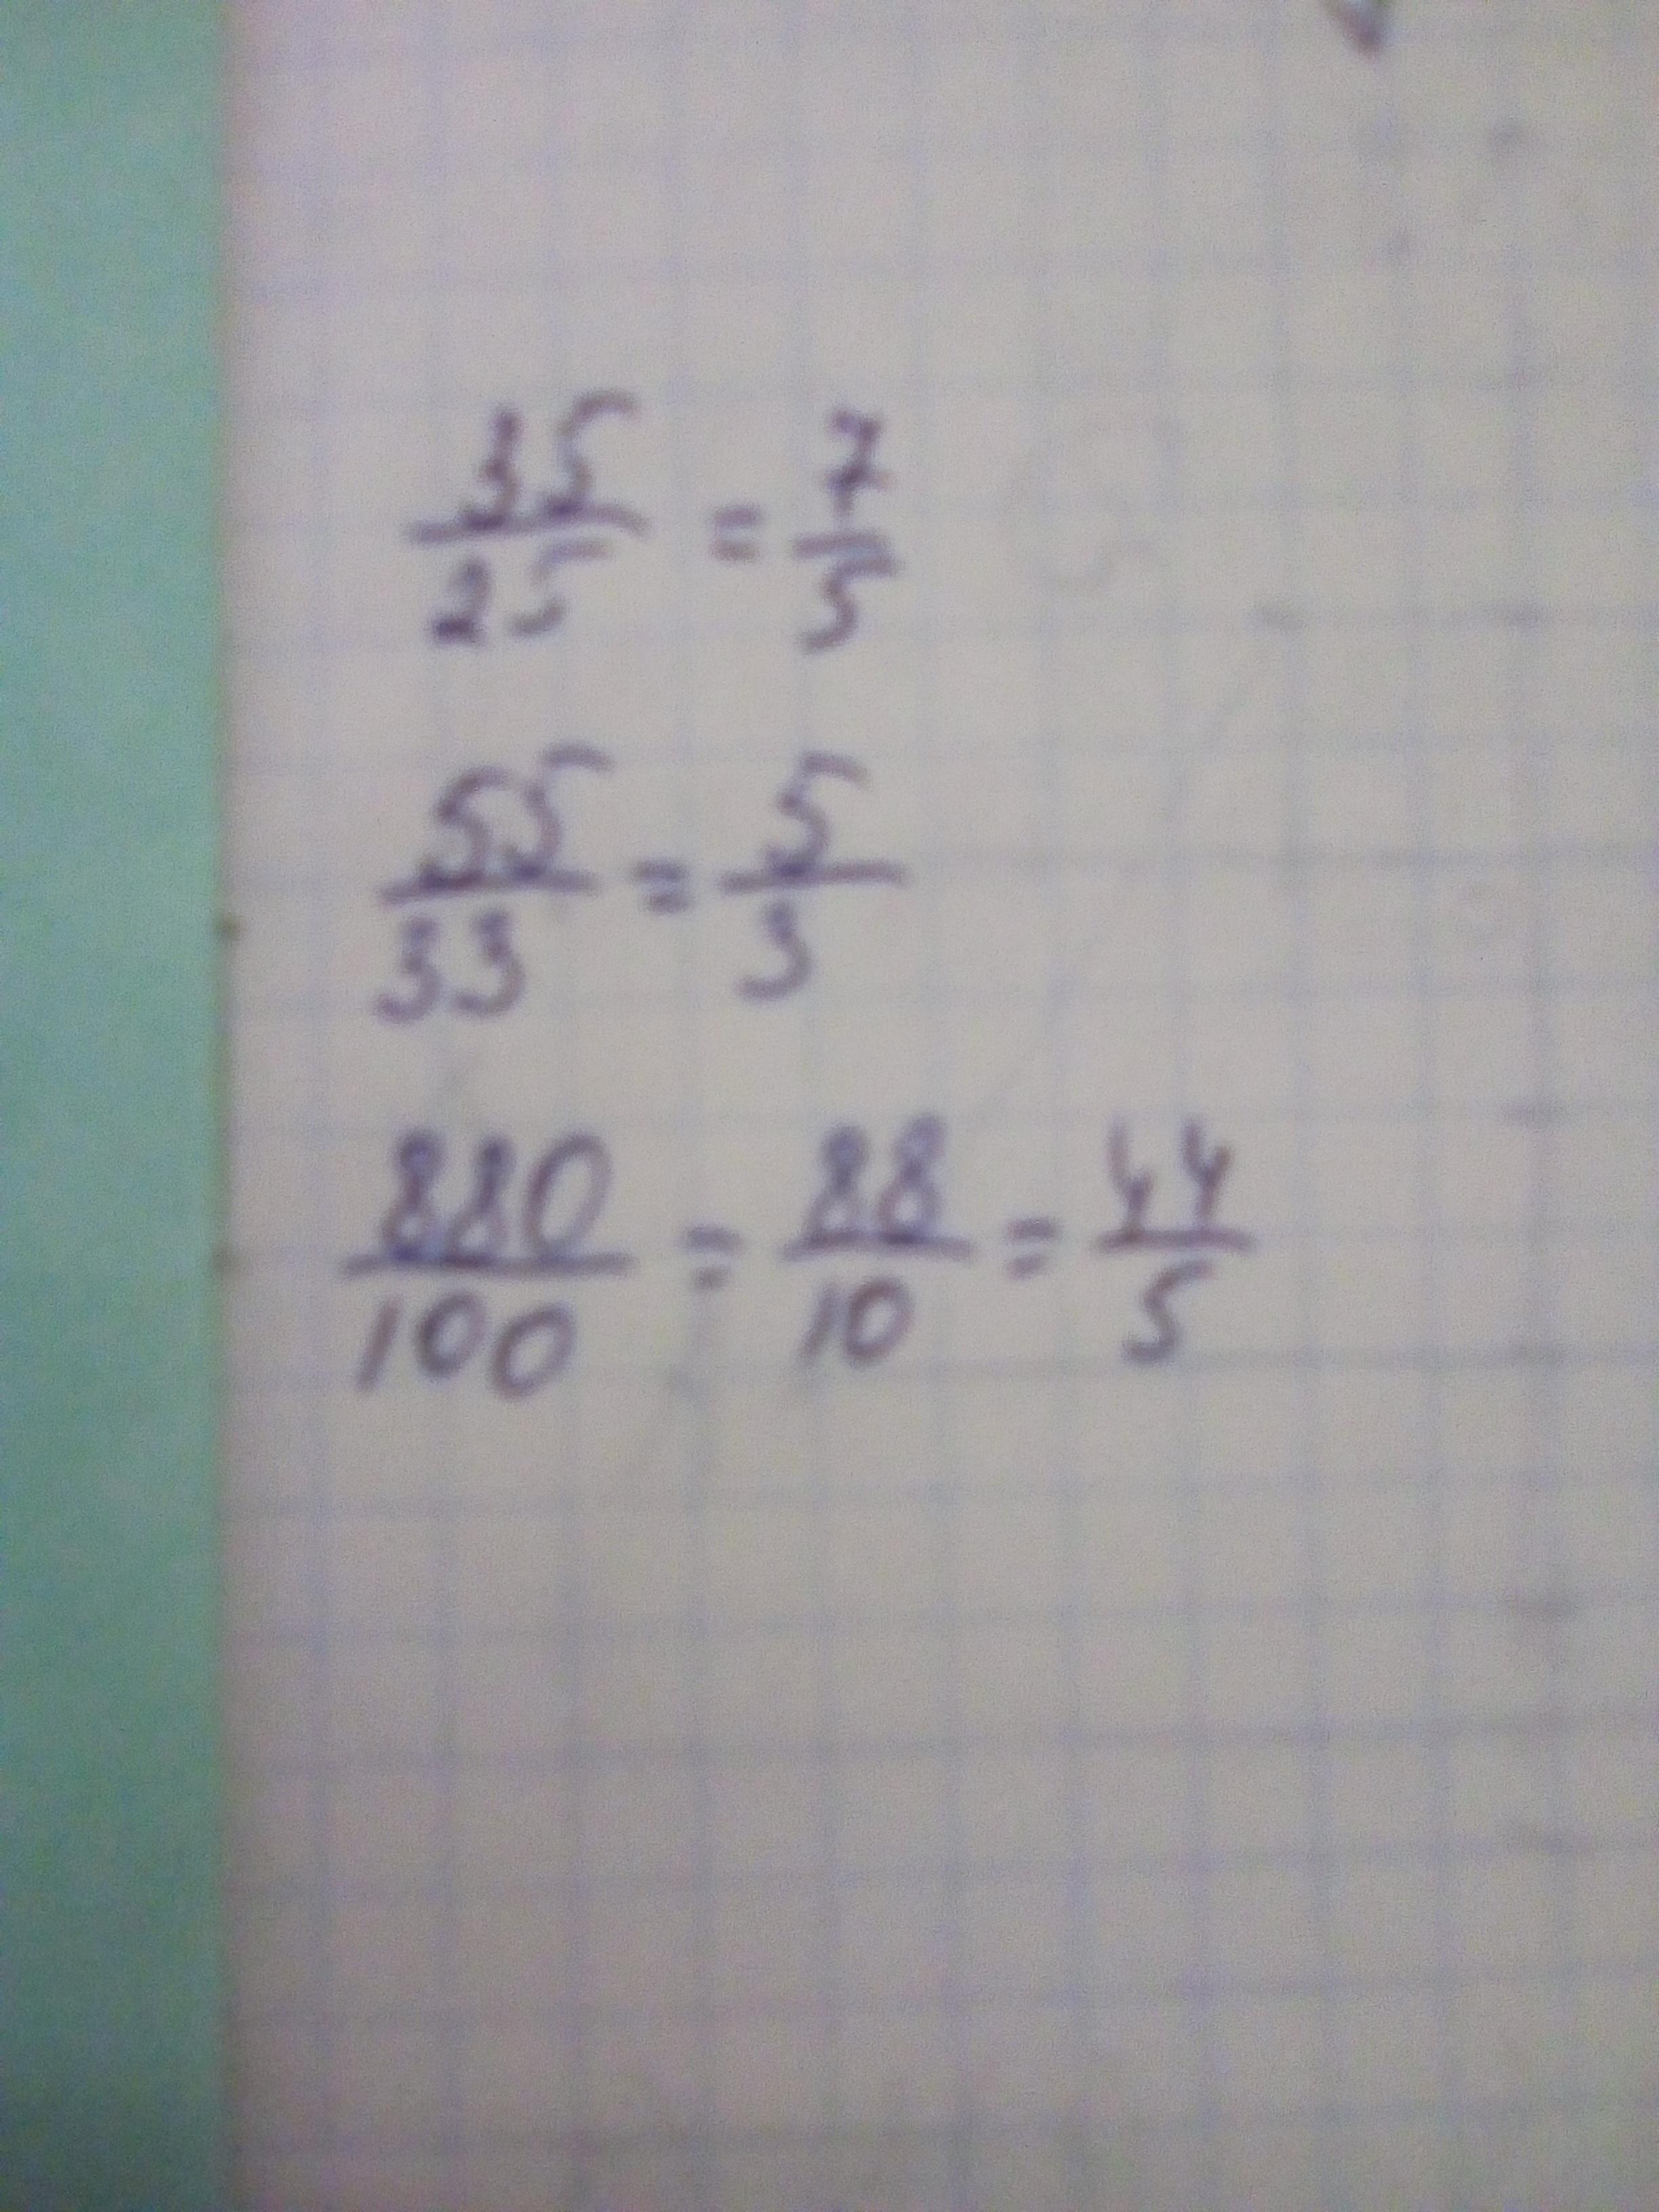 35/25 = 7/5
55/33 = 5/3
880/100 = 88/10 = 44/5